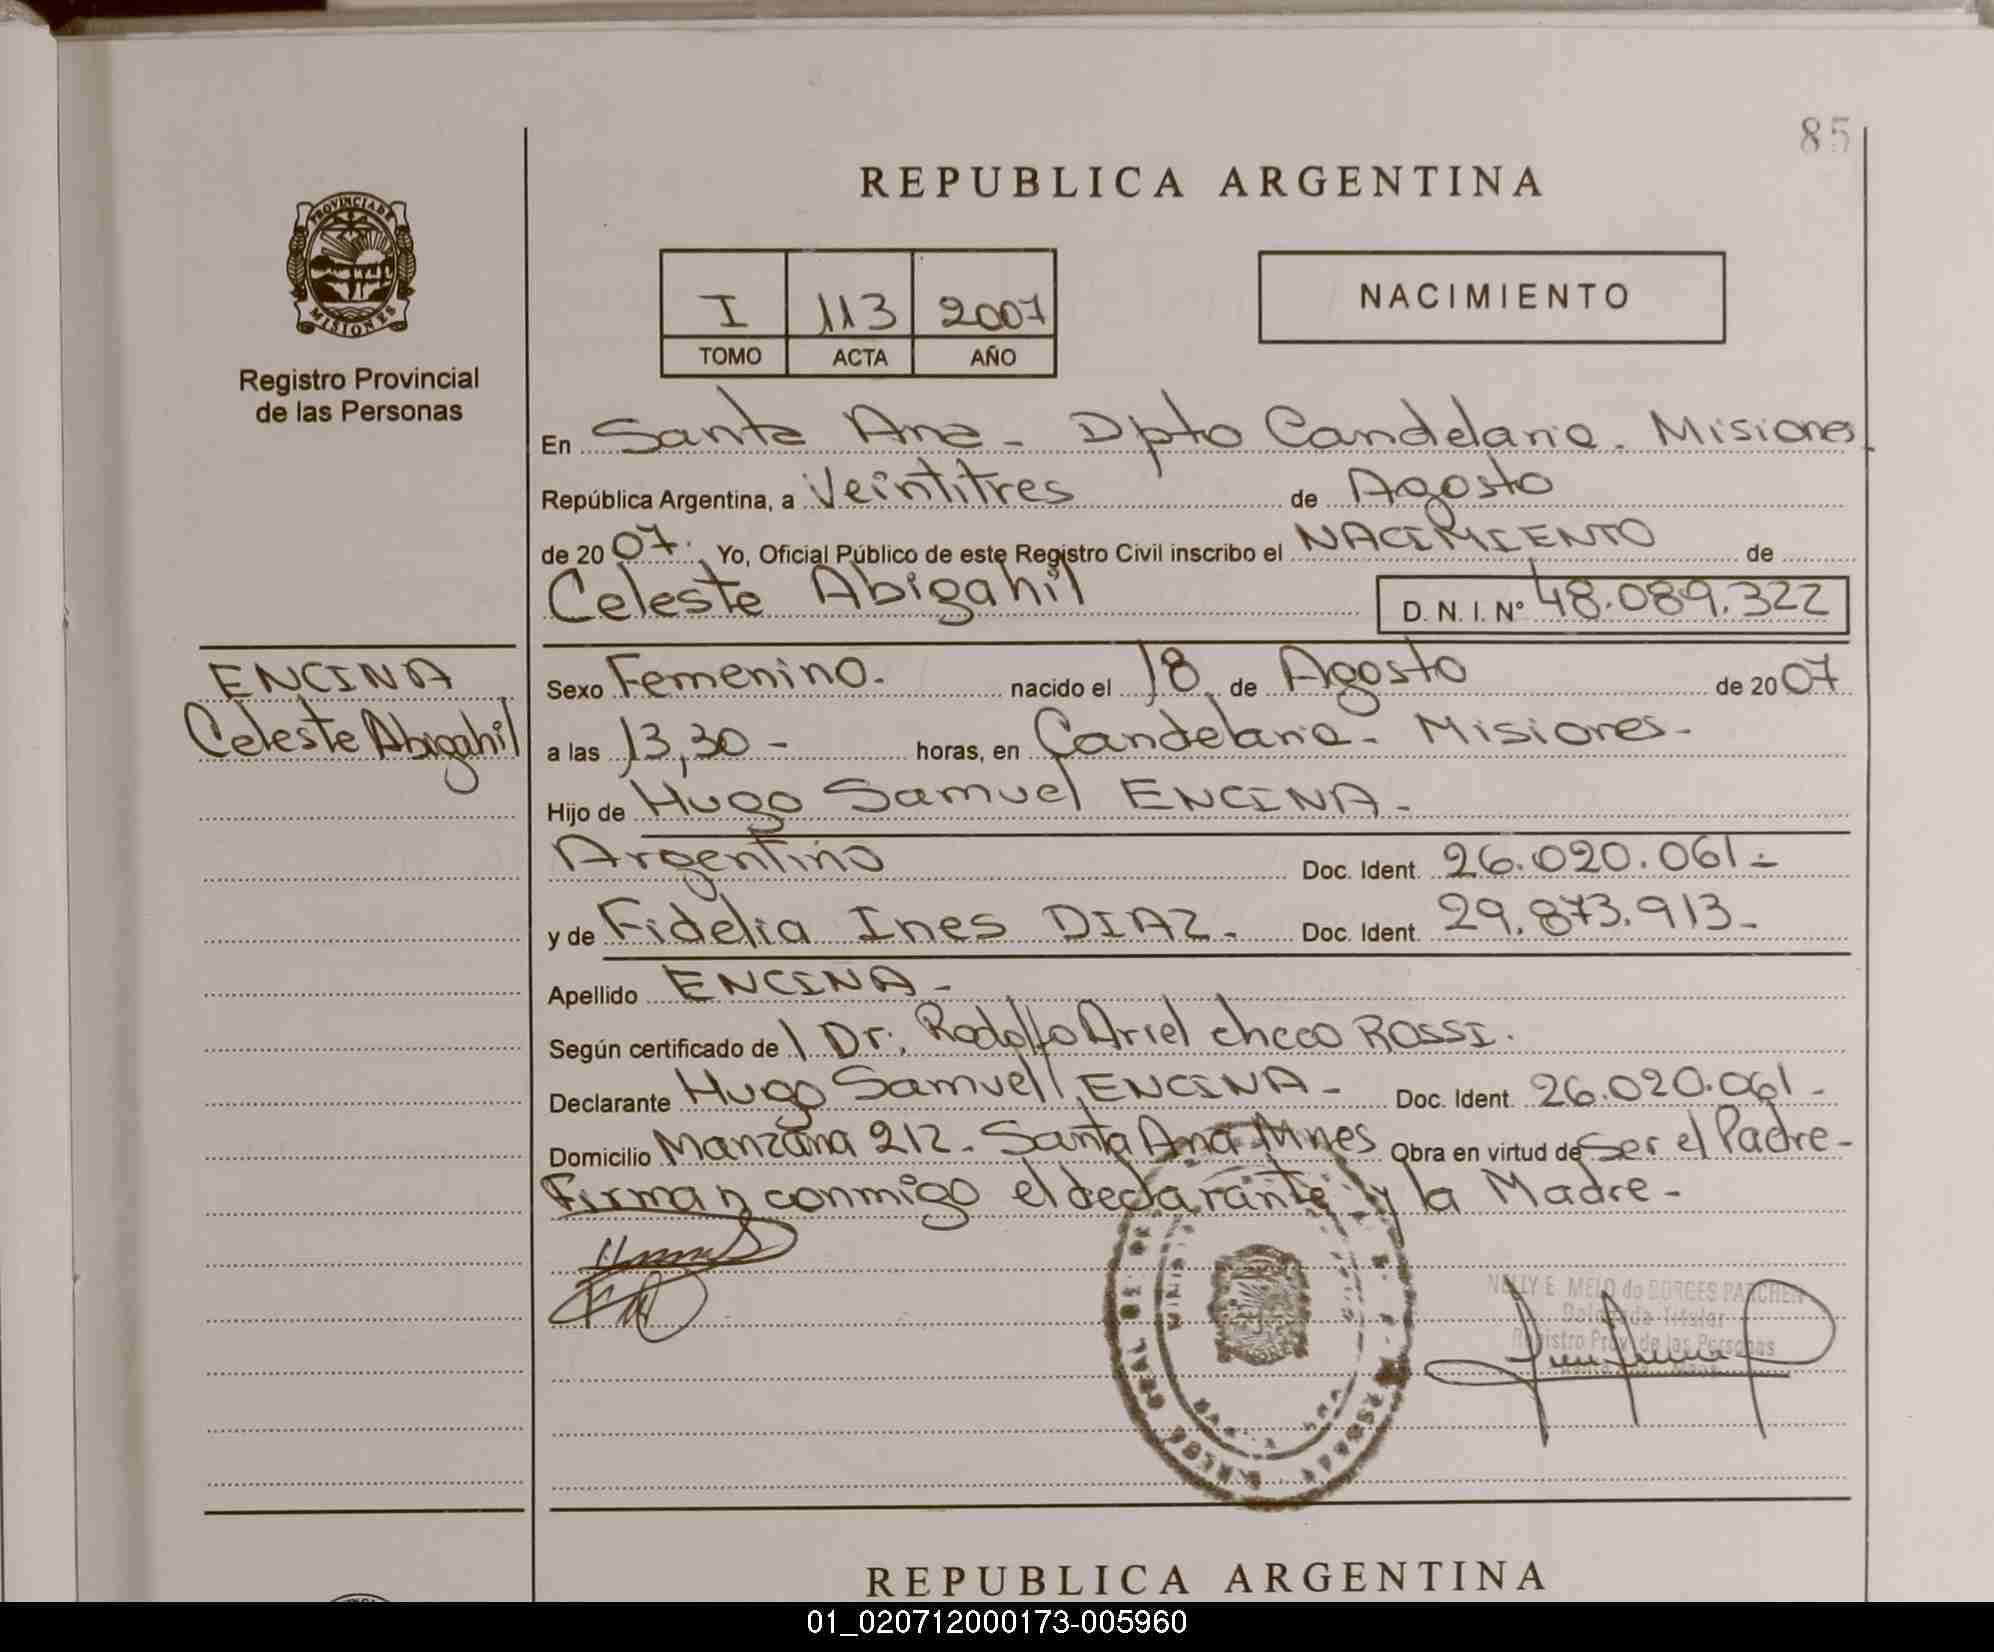 85
REPUBLICA ARGENTINA
PROVINCIA DE
MISIONES
Registro Provincial
de las Personas
I 113 2007
TOMO ACTA AÑO
NACIMIENTO
En Santa Ana - Dpto Candelaria. Misiones
República Argentina, a Veintitres de Agosto
de 2007. Yo, Oficial Público de este Registro Civil inscribo el NACIMIENTO de
Celeste Abigahil D. N. I. Nº 48.089.322
ENCINA
Celeste Abigahil
Sexo Femenino. nacido el 18 de Agosto de 2007
a las 13,30 - horas, en Candelaria - Misiones -
Hijo de Hugo Samuel ENCINA -
Argentino Doc. Ident. 26.020.061 -
y de Fidelia Ines DIAZ - Doc. Ident. 29.873.913 -
Apellido ENCINA -
Según certificado de l Dr. Rodolfo Ariel checo ROSSI.
Declarante Hugo Samuel ENCINA - Doc. Ident. 26.020.061 -
Domicilio Manzana 212 - Santa Ana Mnes Obra en virtud de Ser el Padre -
Firman conmigo el declarante y la Madre -
NELLY E. MELO de BORGES PARCHEN
Delegada Titular
Registro Prov. de las Personas
REPUBLICA ARGENTINA
01_020712000173-005960